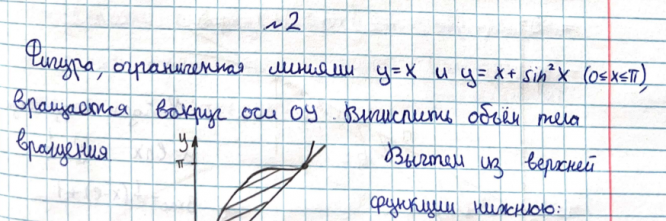 №2
Фигура, ограниченная линиями y=x и y=x+sin²x (0≤x≤π),
вращается вокруг оси OY. Вычислить объём тела
вращения
y
π
Вычтем из верхней
функции нижнюю: